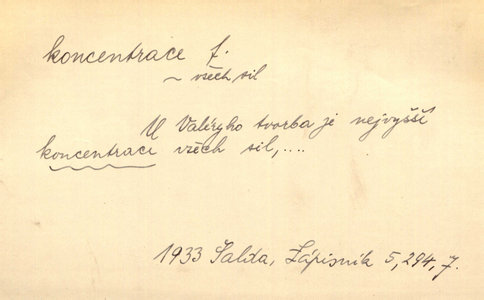 koncentrace f.
~ všech sil
U Valéryho tvorba je nejvyšší
koncentrací všech sil,....
1933 Šalda, Zápisník 5,294,7.